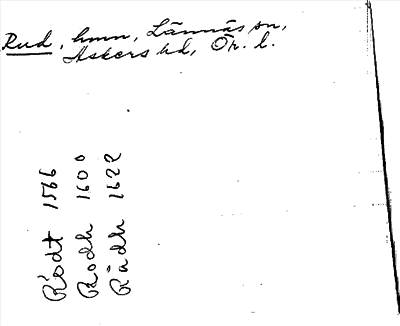 Rud, hmn, Lännäs sn,
Askers hd, Ör. l.
Rodt 1566
Rodh 1600
Rådh 1622